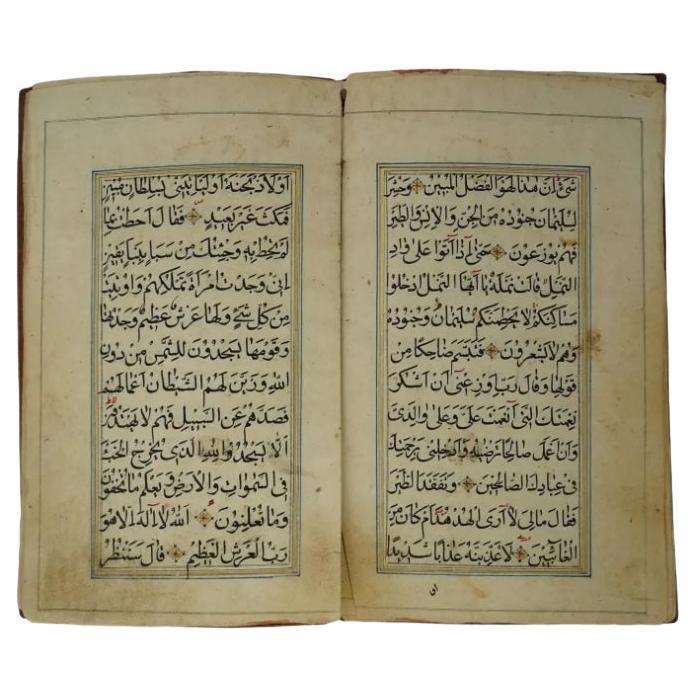 شَیْءٍ اِنَّ هٰذَا لَهُوَ الْفَضْلُ الْمُبِينُ وَحُشِرَ
لِسُلَيْمَانَ جُنُودُهُ مِنَ الْجِنِّ وَالْاِنْسِ وَالطَّيْرِ
فَهُمْ يُوزَعُونَ حَتَّى اِذَا اَتَوْا عَلٰى وَادِ
النَّمْلِ قَالَتْ نَمْلَةٌ يَا اَيُّهَا النَّمْلُ ادْخُلُوا
مَسَاكِنَكُمْ لَا يَحْطِمَنَّكُمْ سُلَيْمَانُ وَجُنُودُهُ
وَهُمْ لَا يَشْعُرُونَ فَتَبَسَّمَ ضَاحِكًا مِنْ
قَوْلِهَا وَقَالَ رَبِّ اَوْزِعْنِى اَنْ اَشْكُرَ
نِعْمَتَكَ الَّتِى اَنْعَمْتَ عَلَىَّ وَعَلٰى وَالِدَىَّ
وَاَنْ اَعْمَلَ صَالِحًا تَرْضٰيهُ وَاَدْخِلْنِى بِرَحْمَتِكَ
فِى عِبَادِكَ الصَّالِحِينَ وَتَفَقَّدَ الطَّيْرَ
فَقَالَ مَالِىَ لَا اَرَى الْهُدْهُدَ اَمْ كَانَ مِنَ
الْغَائِبِينَ لَاُعَذِّبَنَّهُ عَذَابًا شَدِيدًا
اَوْ لَاَذْبَحَنَّهُ اَوْ لَيَاْتِيَنِّى بِسُلْطَانٍ مُبِينٍ
فَمَكَثَ غَيْرَ بَعِيدٍ فَقَالَ اَحَطْتُ بِمَا
لَمْ تُحِطْ بِهِ وَجِئْتُكَ مِنْ سَبَاٍ بِنَبَاٍ يَقِينٍ
اِنِّى وَجَدْتُ امْرَاَةً تَمْلِكُهُمْ وَاُوتِيَتْ
مِنْ كُلِّ شَیْءٍ وَلَهَا عَرْشٌ عَظِيمٌ وَجَدْتُهَا
وَقَوْمَهَا يَسْجُدُونَ لِلشَّمْسِ مِنْ دُونِ
اللهِ وَزَيَّنَ لَهُمُ الشَّيْطَانُ اَعْمَالَهُمْ
فَصَدَّهُمْ عَنِ السَّبِيلِ فَهُمْ لَا يَهْتَدُونَ
اَلَّا يَسْجُدُوا لِلّٰهِ الَّذِى يُخْرِجُ الْخَبْءَ
فِى السَّمٰوَاتِ وَالْاَرْضِ وَيَعْلَمُ مَا تُخْفُونَ
وَمَا تُعْلِنُونَ اَللهُ لَا اِلٰهَ اِلَّا هُوَ
رَبُّ الْعَرْشِ الْعَظِيمِ قَالَ سَنَنْظُرُ